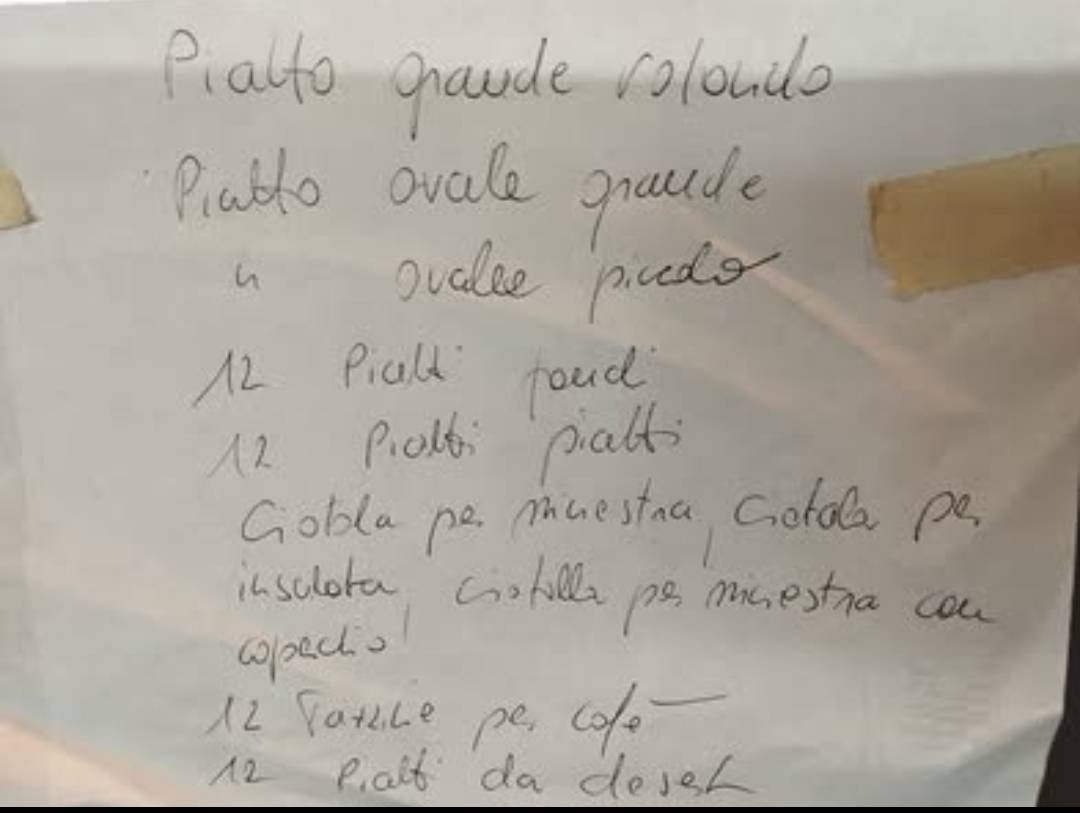 Piatto grande rotondo
Piatto ovale grande
" ovale piccolo
12 Piatti fondi
12 Piatti piatti
Ciotola per minestra, Ciotola per
insalata, Ciotolla per minestra con
copechio
12 Tazzine per cafe
12 Piatti da desert